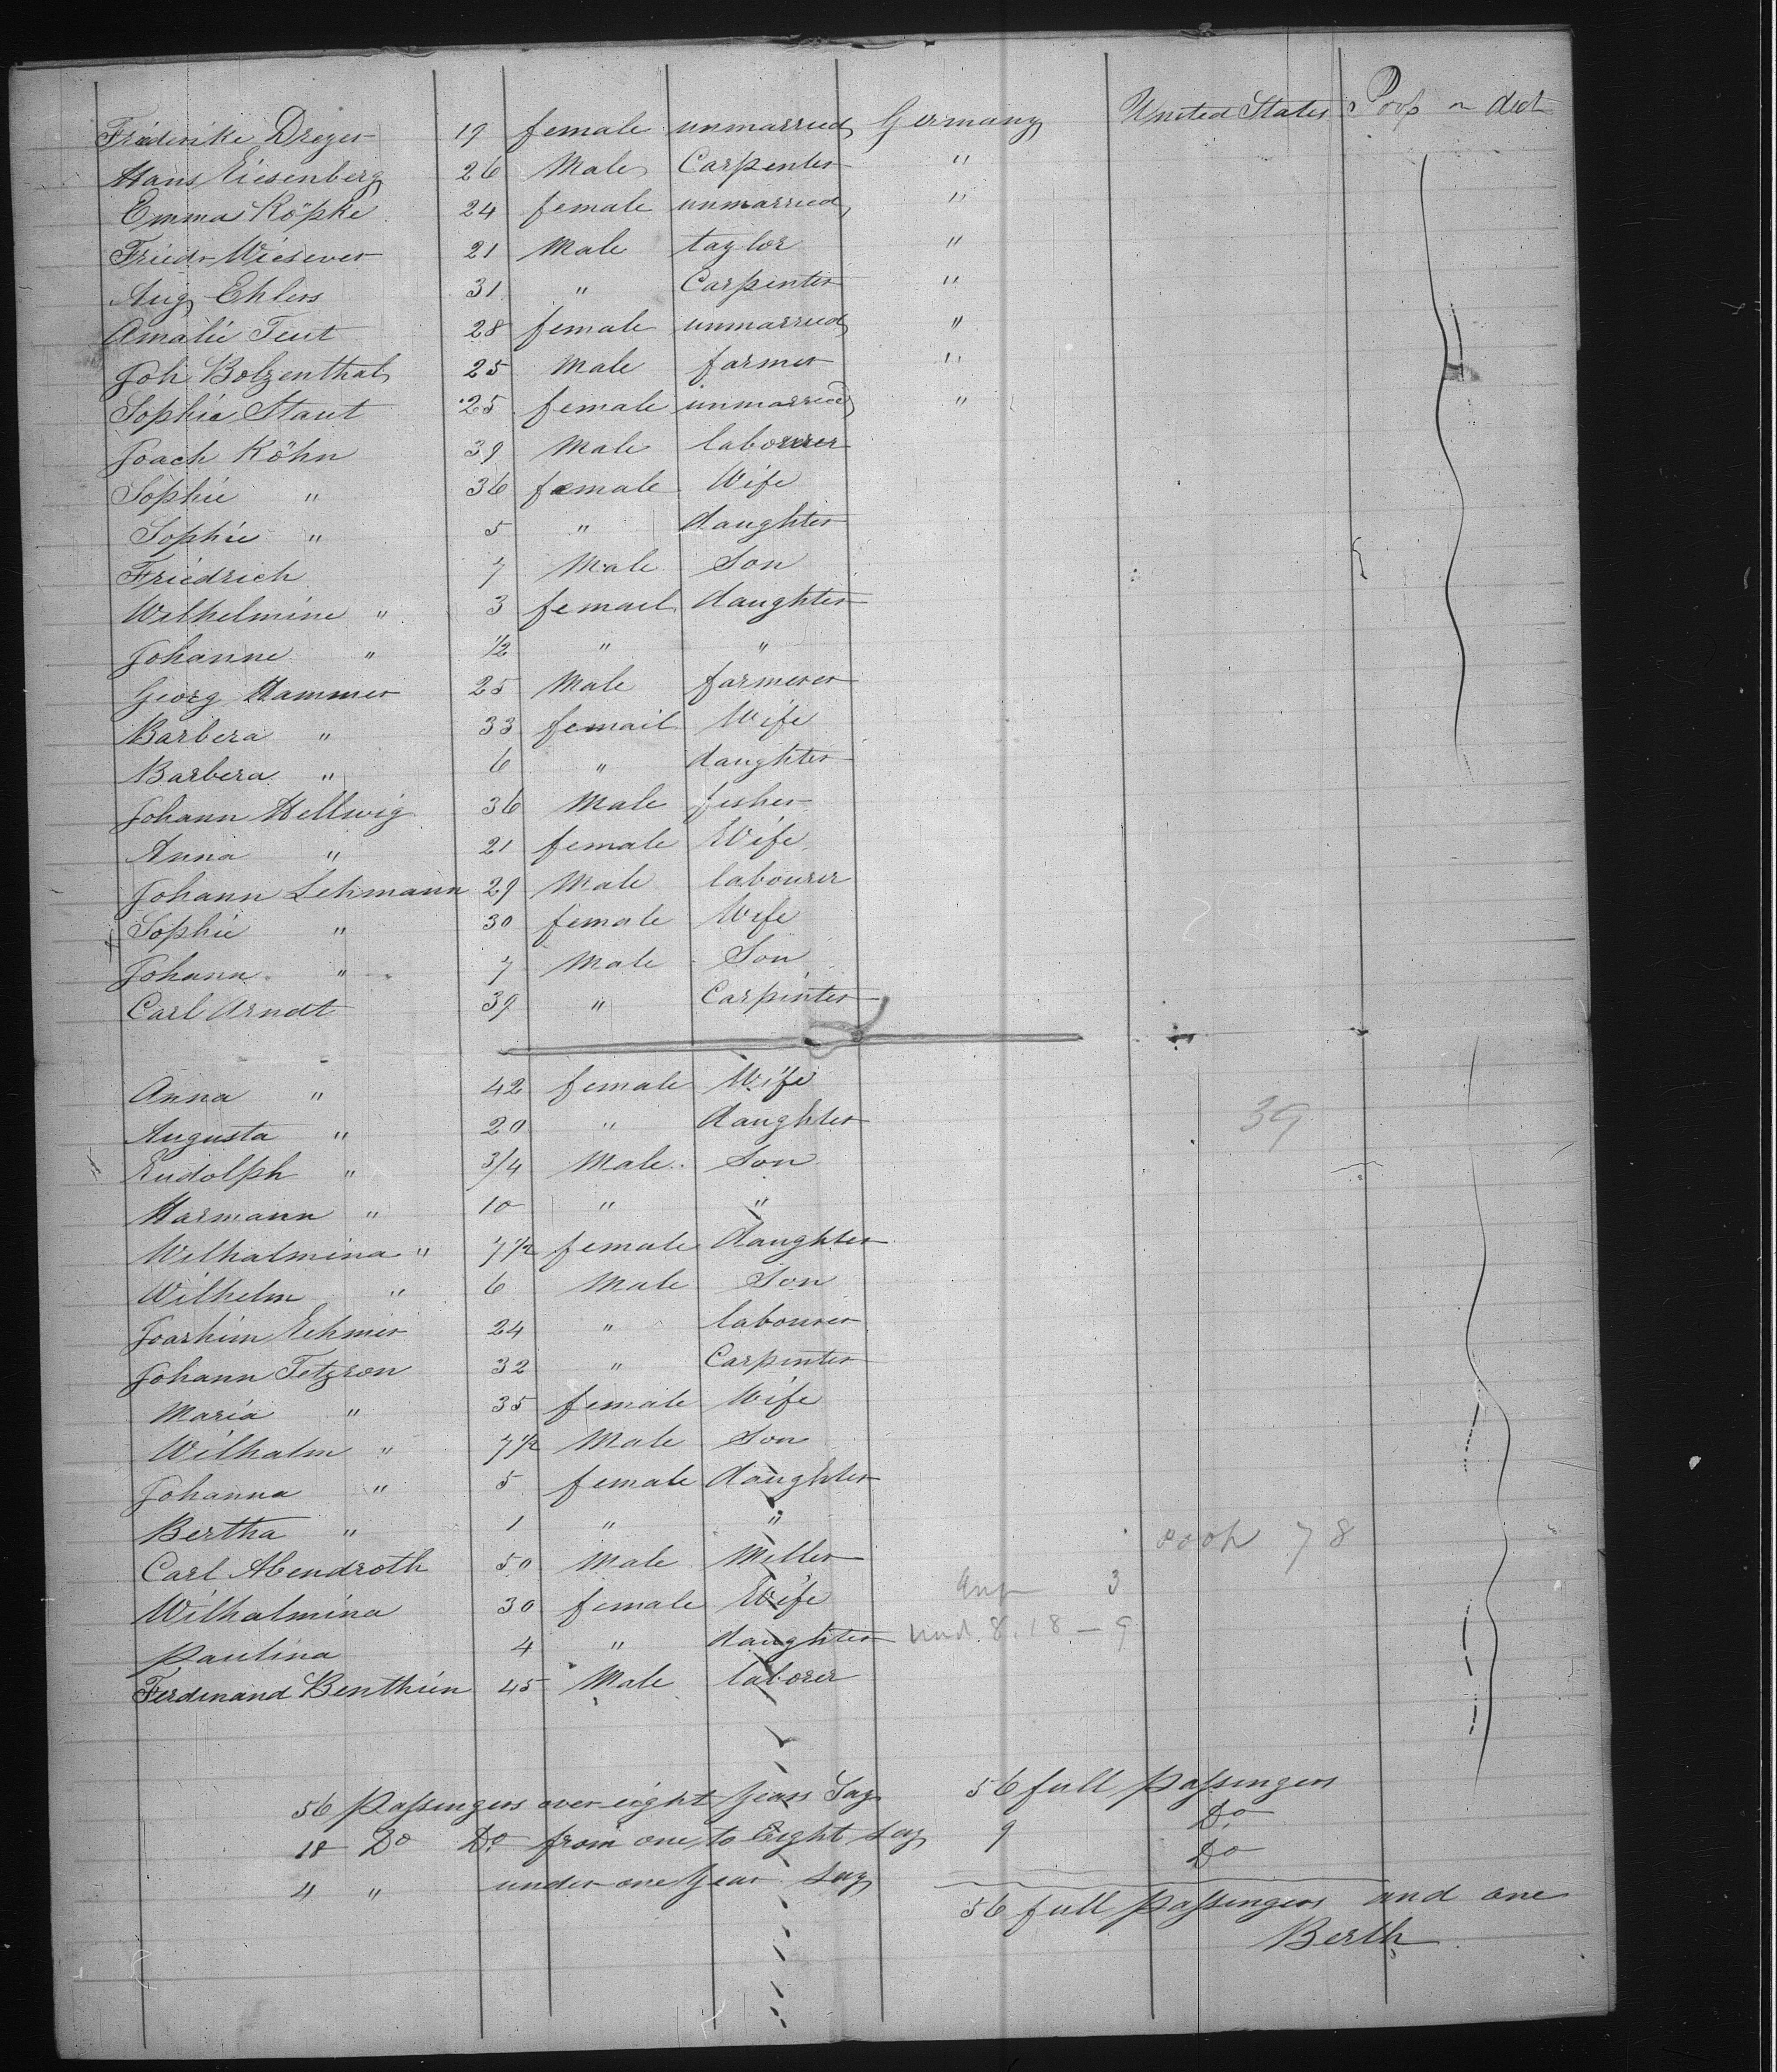 Friederike Dreyer 19 female unmarried Germany United States Poop or deck
Hans Eiesenberg 26 Male Carpenter "
Emma Köpke 24 female unmarried "
Friedr Wiesener 21 Male taylor "
Aug Ehlers 31 " Carpenter "
Amalie Teut 28 female unmarried "
Joh Bolzenthal 25 Male farmer "
Sophia Staut 25 female unmarried "
Joach Köhn 39 Male labourer
Sophie " 36 female Wife
Sophie " 5 " daughter
Friedrich 7 Male Son
Wilhelmine " 3 femail daughter
Johanne " 1/2 " "
Georg Hammer 25 Male farmerer
Barbera " 33 femail Wife
Barbera " 6 " daughter
Johann Hellwig 36 Male fisher
Anna " 21 female Wife
Johann Lehmann 29 Male labourer
Sophie " 30 female Wife
Johann " 7 Male Son
Carl Arndt 39 " Carpinter
Anna " 42 female Wife
Augusta " 20 " daughter 39
Rudolph " 3/4 Male Son
Harmann " 10 " "
Wilhalmina " 7 1/2 female daughter
Wilhelm " 6 Male Son
Joachim Lehmer 24 " labourer
Johann Tetzron 32 " Carpinter
Maria " 35 female Wife
Wilhalm " 7 1/2 Male Son
Johanna " 5 female daughter
Bertha " 1 " "
Carl Abendroth 50 Male Miller poop 78
Wilhalmina 30 female Wife 3
Paulina 4 " daughter und 8. 18 — 9
Ferdinand Benthien 45 Male laborer
56 Passengers over eight Years Say 56 full Passingers
18 Do Do from one to Eight Say 9 Do
4 " under one Year Say Do
56 full Passingers and one
Berth